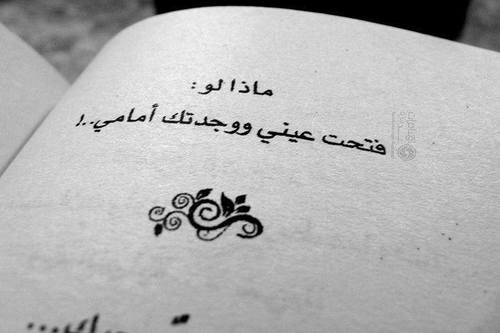 ماذا لو:
فتحت عيني ووجدتك أمامي..!